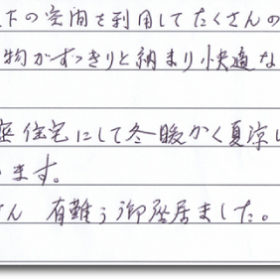 下の空間を利用してたくさんの
物がすっきりと納まり快適な
住宅にして冬暖かく夏涼し
ます。
さん 有難う御座居ました。